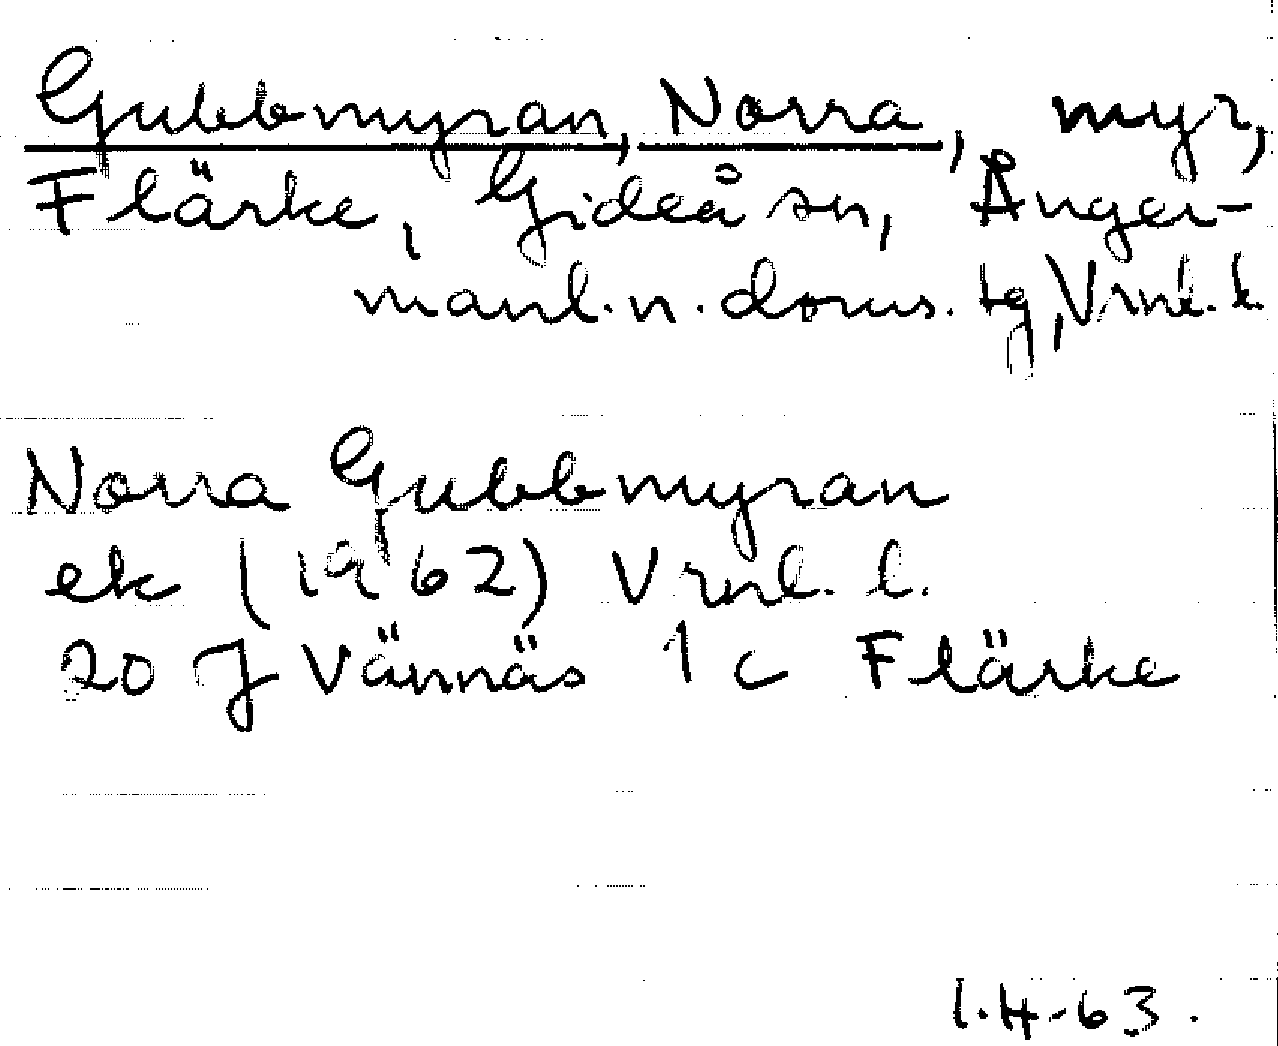 Gubbmyran, Norra, myr,
Flärke, Gideå sn, Ånger-
manl. n. doms. tg, Vrnl. l.
Norra Gubbmyran
ek (1962) Vrnl. l.
20 J Vännäs 1 c Flärke
I.H-63.